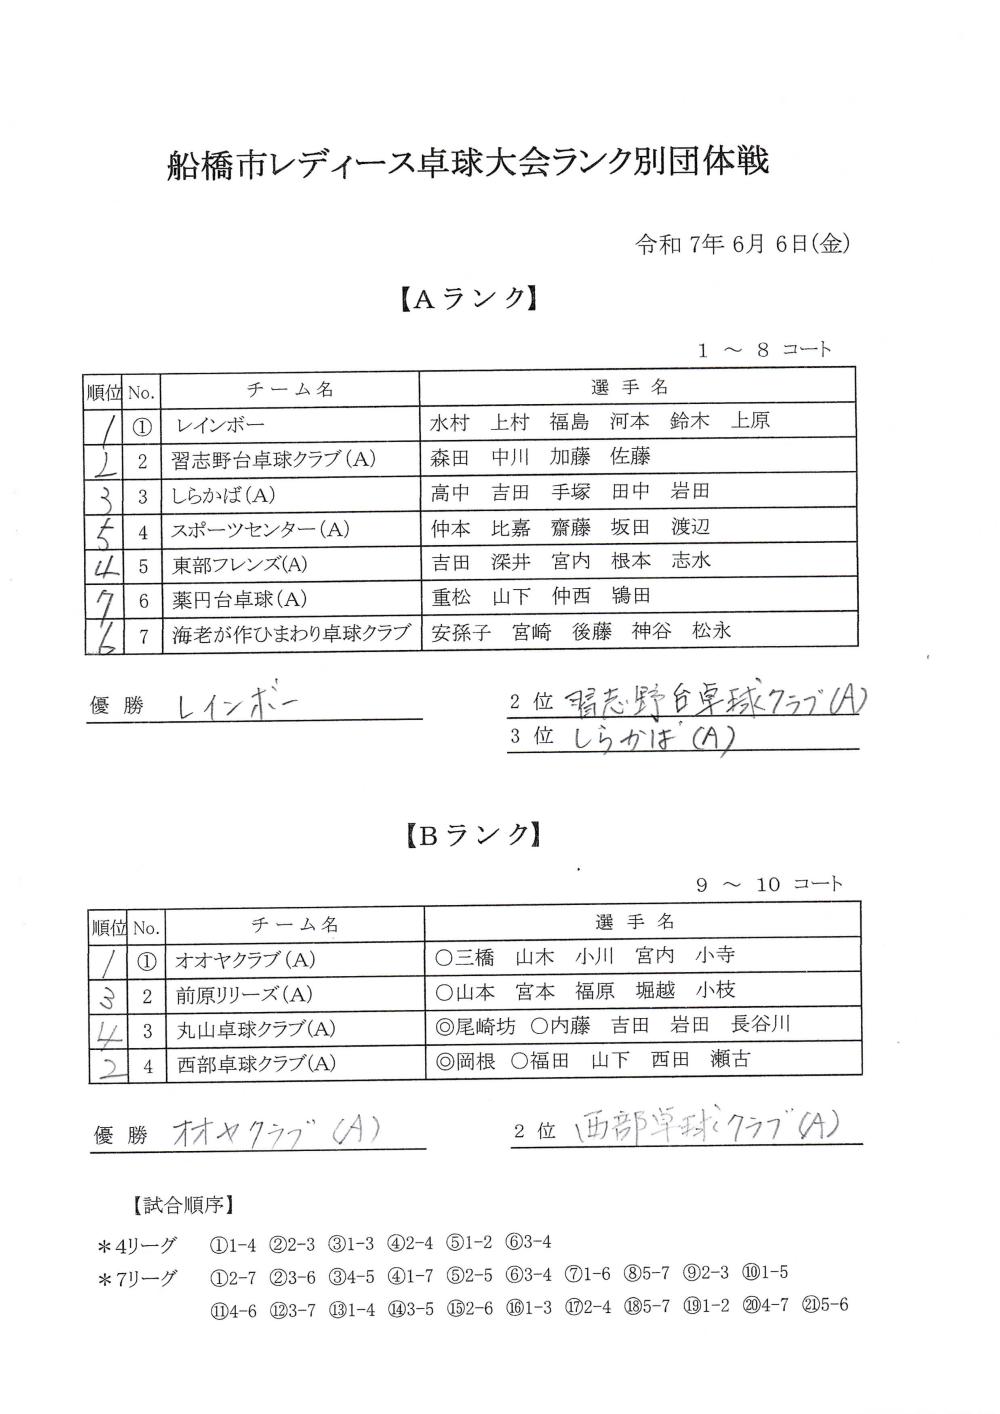 船橋市レディース卓球大会ランク別団体戦
令和 7年 6月 6日(金)
【Aランク】
1 ～ 8 コート
順位 No. チーム名 選手名
1 ① レインボー 水村 上村 福島 河本 鈴木 上原
2 2 習志野台卓球クラブ(A) 森田 中川 加藤 佐藤
3 3 しらかば(A) 高中 吉田 手塚 田中 岩田
5 4 スポーツセンター(A) 仲本 比嘉 齋藤 坂田 渡辺
4 5 東部フレンズ(A) 吉田 深井 宮内 根本 志水
7 6 薬円台卓球(A) 重松 山下 仲西 鴇田
6 7 海老が作ひまわり卓球クラブ 安孫子 宮崎 後藤 神谷 松永
優勝 レインボー 2位 習志野台卓球クラブ(A)
3位 しらかば(A)
【Bランク】
9 ～ 10 コート
順位 No. チーム名 選手名
1 ① オオヤクラブ(A) ○三橋 山木 小川 宮内 小寺
3 2 前原リリーズ(A) ○山本 宮本 福原 堀越 小枝
4 3 丸山卓球クラブ(A) ◎尾崎坊 ○内藤 吉田 岩田 長谷川
2 4 西部卓球クラブ(A) ◎岡根 ○福田 山下 西田 瀬古
優勝 オオヤクラブ(A) 2位 西部卓球クラブ(A)
【試合順序】
＊4リーグ ①1-4 ②2-3 ③1-3 ④2-4 ⑤1-2 ⑥3-4
＊7リーグ ①2-7 ②3-6 ③4-5 ④1-7 ⑤2-5 ⑥3-4 ⑦1-6 ⑧5-7 ⑨2-3 ⑩1-5
⑪4-6 ⑫3-7 ⑬1-4 ⑭3-5 ⑮2-6 ⑯1-3 ⑰2-4 ⑱5-7 ⑲1-2 ⑳4-7 ㉑5-6